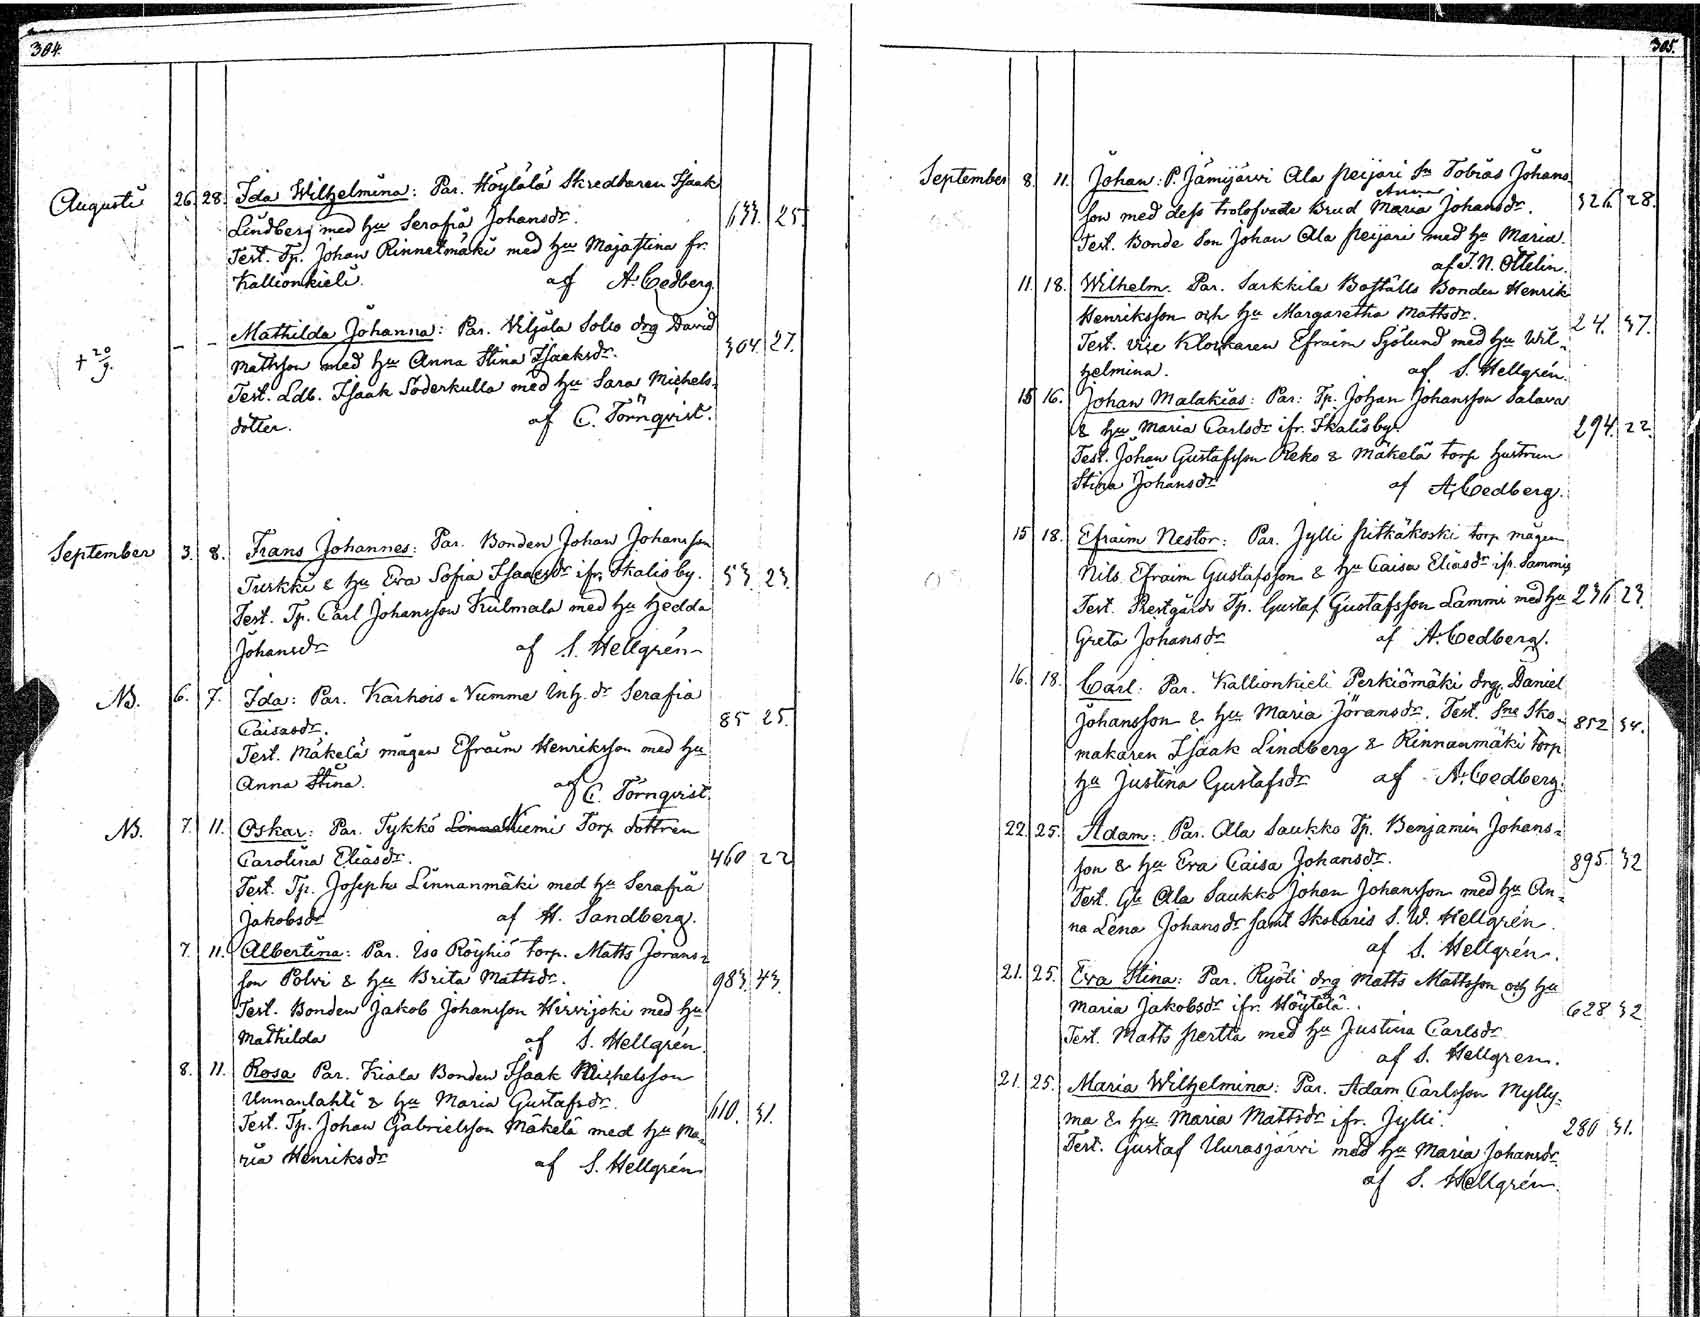 304.
Augusti 26. 28. Ida Wilhelmina: Par. Höylölä Skreddaren Isaak
Lindberg med hu Serafia Johansdr. 633. 25.
Test. Tp. Johan Rinnelmäki med hu Majastina fr.
Kallionkieli. af A. Cedberg.
– – Mathilda Johanna: Par. Viljala Solio drg David
+ 20/9. Mattsson med hu Anna Stina Isaaksdr. 304. 27.
Test. Ldb. Isaak Söderkulla med hu Sara Michels-
dotter. af C. Törnqvist.
September 3. 8. Frans Johannes: Par. Bonden Johan Johansson
Turkki & hu Eva Sofia Isaacsdr ifr. Skalisby. 53. 23.
Test. Tp. Carl Johansson Kulmala med hu Hedda
Johansdr af S. Hellgrén
NB. 6. 7. Ida: Par. Karhois Numme Inh. dr Serafia
Caisasdr. 85 25.
Test. Mäkelä mågen Efraim Henriksson med hu
Anna Stina. af C. Törnqvist.
NB. 7. 11. Oskar: Par. Tykkö Niemi Torp dottren
Carolina Eliasdr. 460 22
Test. Tp. Joseph Linnanmäki med hu Serafia
Jakobsdr af H. Sandberg.
7. 11. Albertina: Par. Iso Röyhiö torp. Matts Jörans-
son Polvi & hu Brita Mattsdr. 983. 43.
Test. Bonden Jakob Johansson Hirvijoki med hu
Mathilda af S. Hellgrén.
8. 11. Rosa Par. Kiala Bonden Isaak Michelsson
Unnanlahti & hu Maria Gustafsdr. 610. 31.
Test. Tp. Johan Gabrielsson Mäkelä med hu Ma-
ria Henriksdr af S. Hellgrén
305.
September 8. 11. Johan: P. Jämijärvi Ala Peijari Sn Tobias Johans
Anna
son med dess trolofvade Brud Maria Johansdr. 326. 28.
Test. Bonde Son Johan Ala Peijari med hu Maria.
af J. N. Ottelin.
11. 18. Wilhelm. Par. Sarkkila Boställs Bonden Henrik
Henriksson och hu Margaretha Mattsdr. 24. 37.
Test. vice Klockaren Efraim Sjölund med hu Wil-
helmina. af S. Hellgrén.
15 16. Johan Malakias: Par: Tp. Johan Johansson Salava
& hu Maria Carlsdr ifr. Skalisby. 294. 22.
Test. Johan Gustafsson Reko & Mäkelä torp hustrun
Stina Johansdr af A. Cedberg.
15 18. Efraim Nestor: Par. Jylli Pitkäkoski torp mågen
Nils Efraim Gustafsson & hu Caisa Eliasdr ifr. Sammis
Test. Prestgårds Tp. Gustaf Gustafsson Lammi med hu 236 23.
Greta Johansdr af A. Cedberg.
16. 18. Carl: Par. Kallionkieli Perkiömäki drg. Daniel
Johansson & hu Maria Jöransdr. Test. Sne Sko- 852 34.
makaren Isaak Lindberg & Rinnanmäki torp
hu Justina Gustafsdr af A. Cedberg.
22. 25. Adam: Par. Ala Saukko Tp. Benjamin Johans-
son & hu Eva Caisa Johansdr. 895. 32
Test. Gu Ala Saukko Johan Johansson med hu An-
na Lena Johansdr samt Skolaris S. W. Hellgrén.
af S. Hellgrén.
21. 25. Eva Stina: Par. Ryöti drg Matts Mattsson och hu
Maria Jakobsdr ifr. Höytölä. 628 32
Test. Matts Pertta med hu Justina Carlsdr
af S. Hellgren.
21. 25. Maria Wilhelmina: Par. Adam Carlsson Mylly-
ma & hu Maria Mattsdr ifr. Jylli. 280 31.
Test. Gustaf Uurasjärvi med hu Maria Johansdr
af S. Hellgrén.